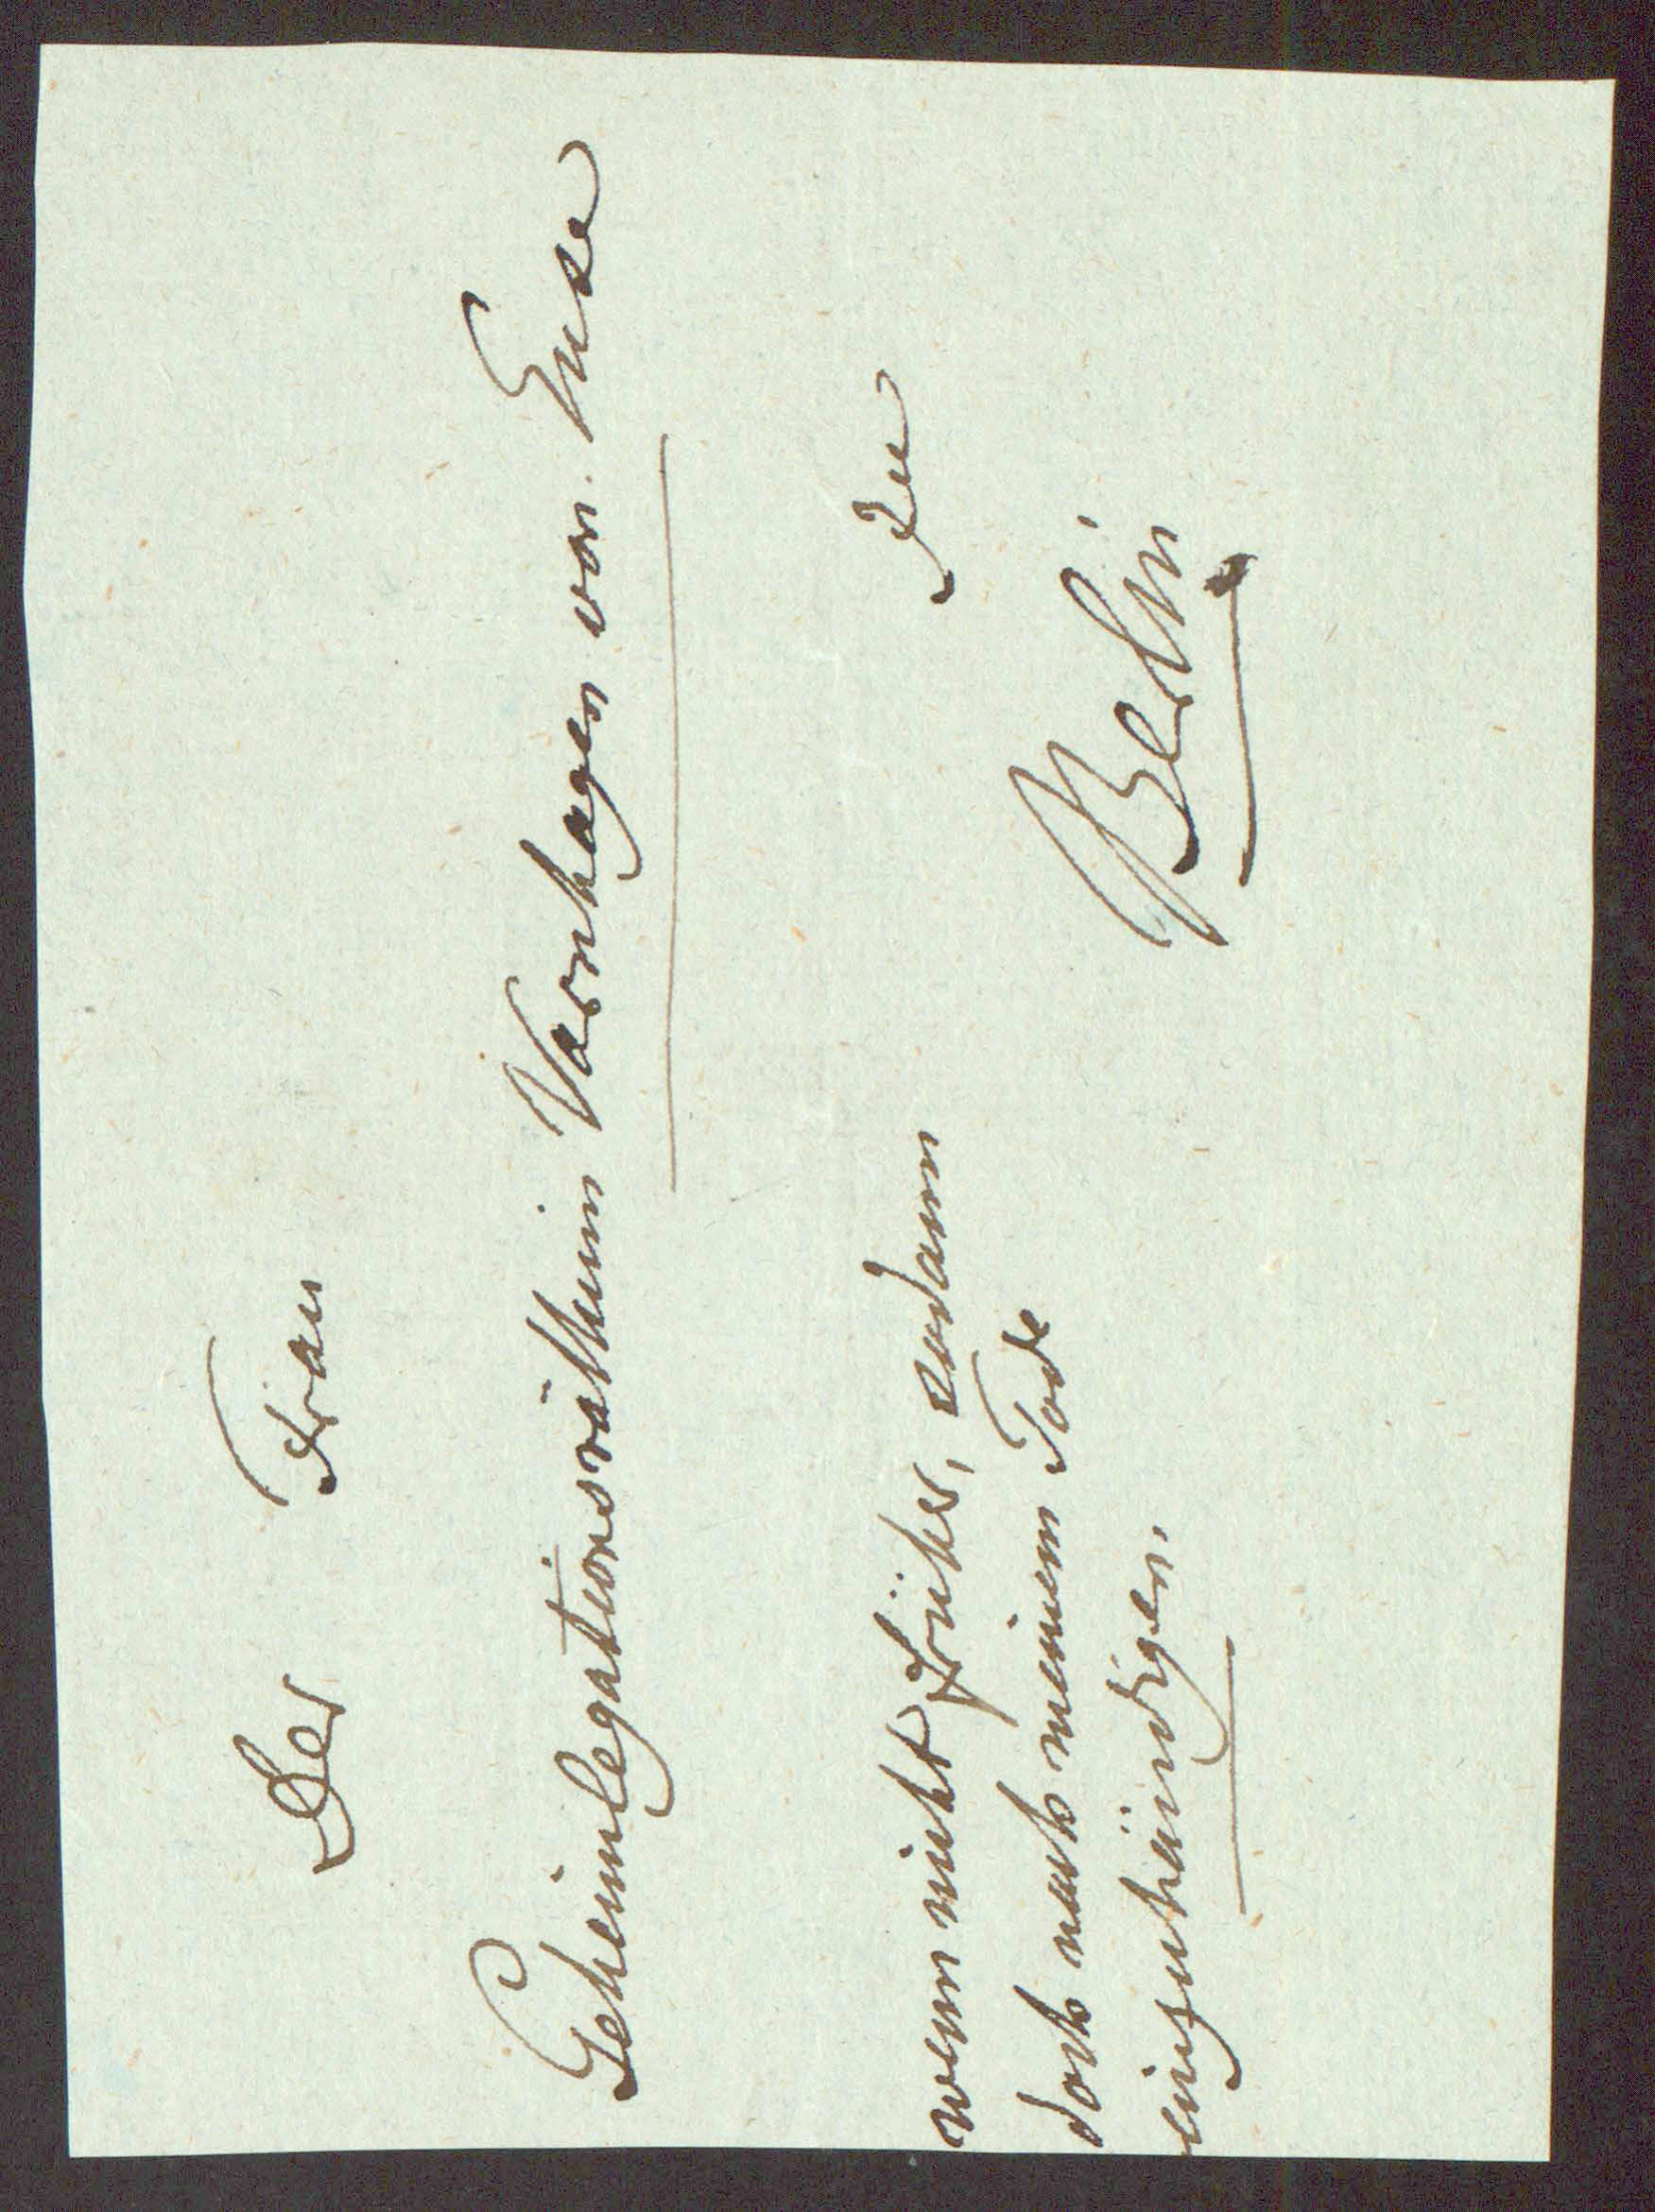 Der Frau
Geheimlegationsräthin Varnhagen von Ense
zu
Berlin
wenn nicht früher, sodann
doch nach meinem Tode
einzuhändigen.